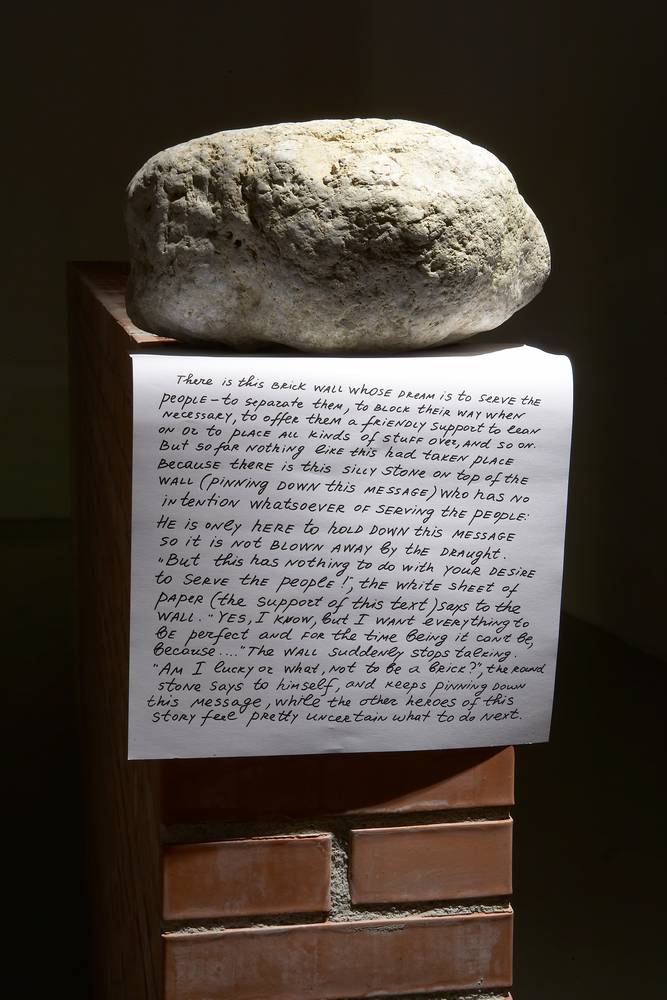 There is this BRICK WALL WHOSE DREAM is to SERVE THE
people – to separate them, to BLOCK THEIR WAY WHEN
NECESSARY, to offer them a friendly support to lean
on or to place all kinds of stuff over, and so on.
But so far nothing like this had taken place
because there is this silly stone on top of the
wall (pinning down this message) who has no
intention whatsoever of serving the people:
He is only here to hold down this message
so it is not blown away by the draught.
"But this has nothing to do with your desire
to serve the people!", the white sheet of
paper (the support of this text) says to the
wall. "Yes, I know, but I want everything to
be perfect and for the time being it can't be,
because...." The wall suddenly stops talking.
"Am I lucky or what, not to be a brick?", the round
stone says to himself, and keeps pinning down
this message, while the other heroes of this
story feel pretty uncertain what to do next.